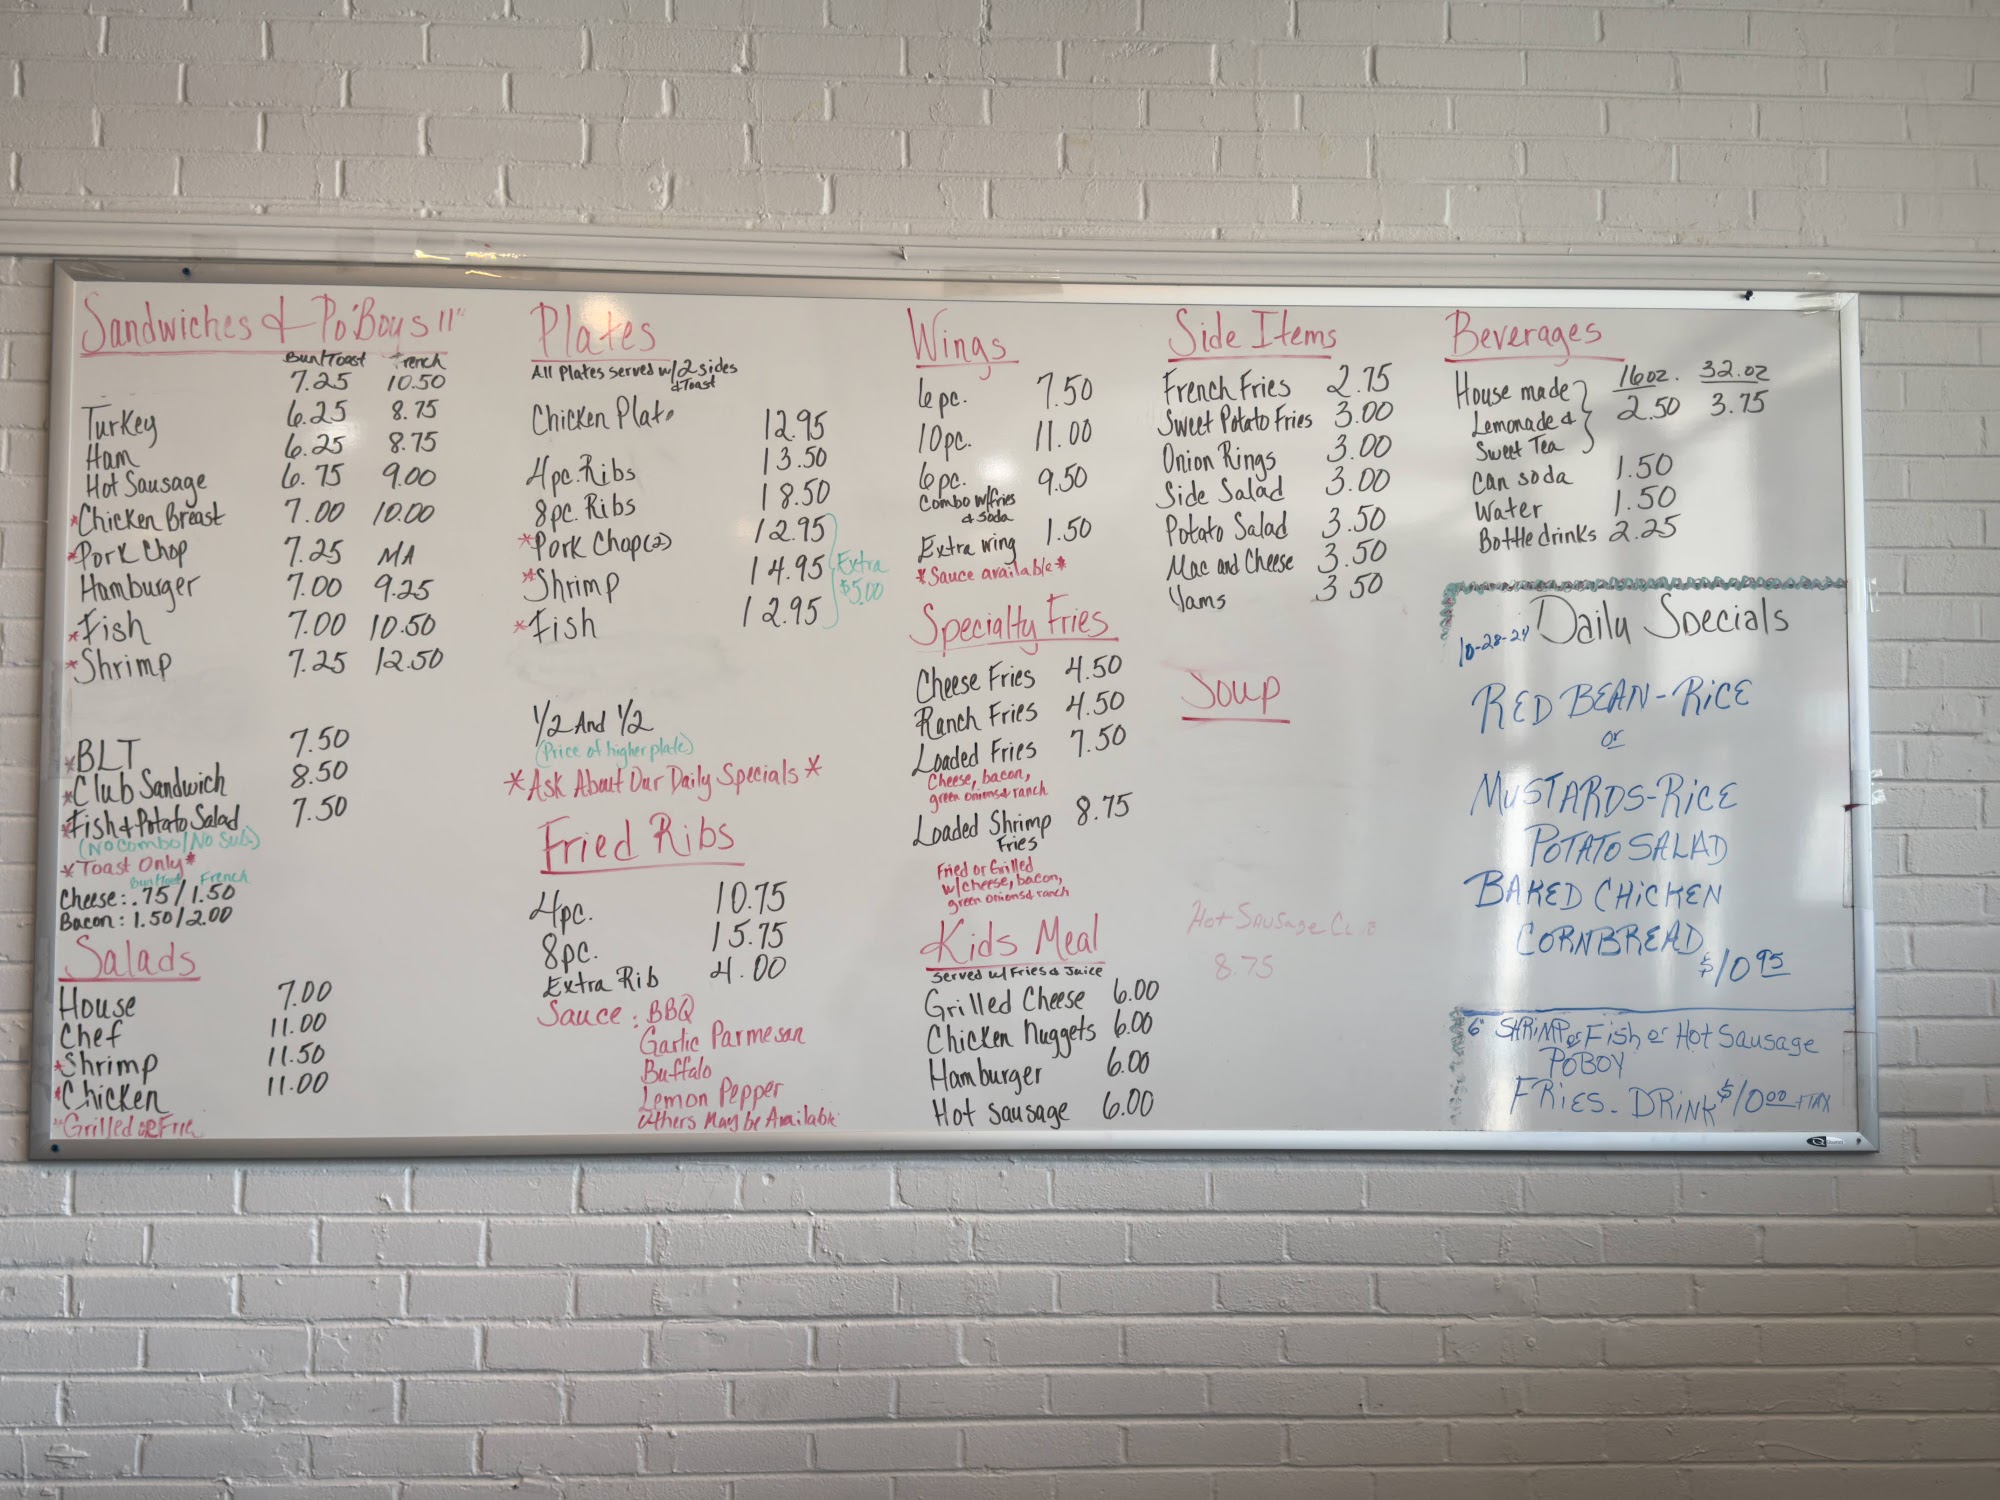 Sandwiches & Po'Boys 11"
Bun/Toast French
7.25 10.50
Turkey 6.25 8.75
Ham 6.25 8.75
Hot Sausage 6.75 9.00
*Chicken Breast 7.00 10.00
*Pork Chop 7.25 NA
Hamburger 7.00 9.25
*Fish 7.00 10.50
*Shrimp 7.25 12.50
*BLT 7.50
*Club Sandwich 8.50
*Fish & Potato Salad 7.50
(No combo/No Sub.)
*Toast Only*
Bun/Toast French
Cheese: .75/1.50
Bacon: 1.50/2.00
Salads
House 7.00
Chef 11.00
*Shrimp 11.50
*Chicken 11.00
*Grilled OR Frie
Plates
All Plates served w/2 sides
& Toast
Chicken Plate 12.95
4pc. Ribs 13.50
8pc. Ribs 18.50
*Pork Chop(2) 12.95
*Shrimp 14.95
*Fish 12.95
Extra
$5.00
1/2 And 1/2
(Price of higher plate)
*Ask About Our Daily Specials*
Fried Ribs
4pc. 10.75
8pc. 15.75
Extra Rib 4.00
Sauce: BBQ
Garlic Parmesan
Buffalo
Lemon Pepper
Others May be Available
Wings
6pc. 7.50
10pc. 11.00
6pc. 9.50
Combo w/fries
& Soda
Extra wing 1.50
*Sauce available*
Specialty Fries
Cheese Fries 4.50
Ranch Fries 4.50
Loaded Fries 7.50
Cheese, bacon,
green onions & ranch
Loaded Shrimp 8.75
Fries
Fried or Grilled
w/cheese, bacon,
green onions & ranch
Kids Meal
Served w/ Fries & Juice
Grilled Cheese 6.00
Chicken Nuggets 6.00
Hamburger 6.00
Hot Sausage 6.00
Side Items
French Fries 2.75
Sweet Potato Fries 3.00
Onion Rings 3.00
Side Salad 3.00
Potato Salad 3.50
Mac and Cheese 3.50
Yams 3 50
Soup
Hot Sausage
8.75
Beverages
16oz. 32.oz
House made 2.50 3.75
Lemonade &
Sweet Tea
Can soda 1.50
Water 1.50
Bottle drinks 2.25
10-28-24 Daily Specials
RED BEAN-RICE
or
MUSTARDS-RICE
POTATO SALAD
BAKED CHICKEN
CORNBREAD
$10 95
6" SHRIMP or Fish or Hot Sausage
POBOY
FRIES. DRINK $10 00 +TAX